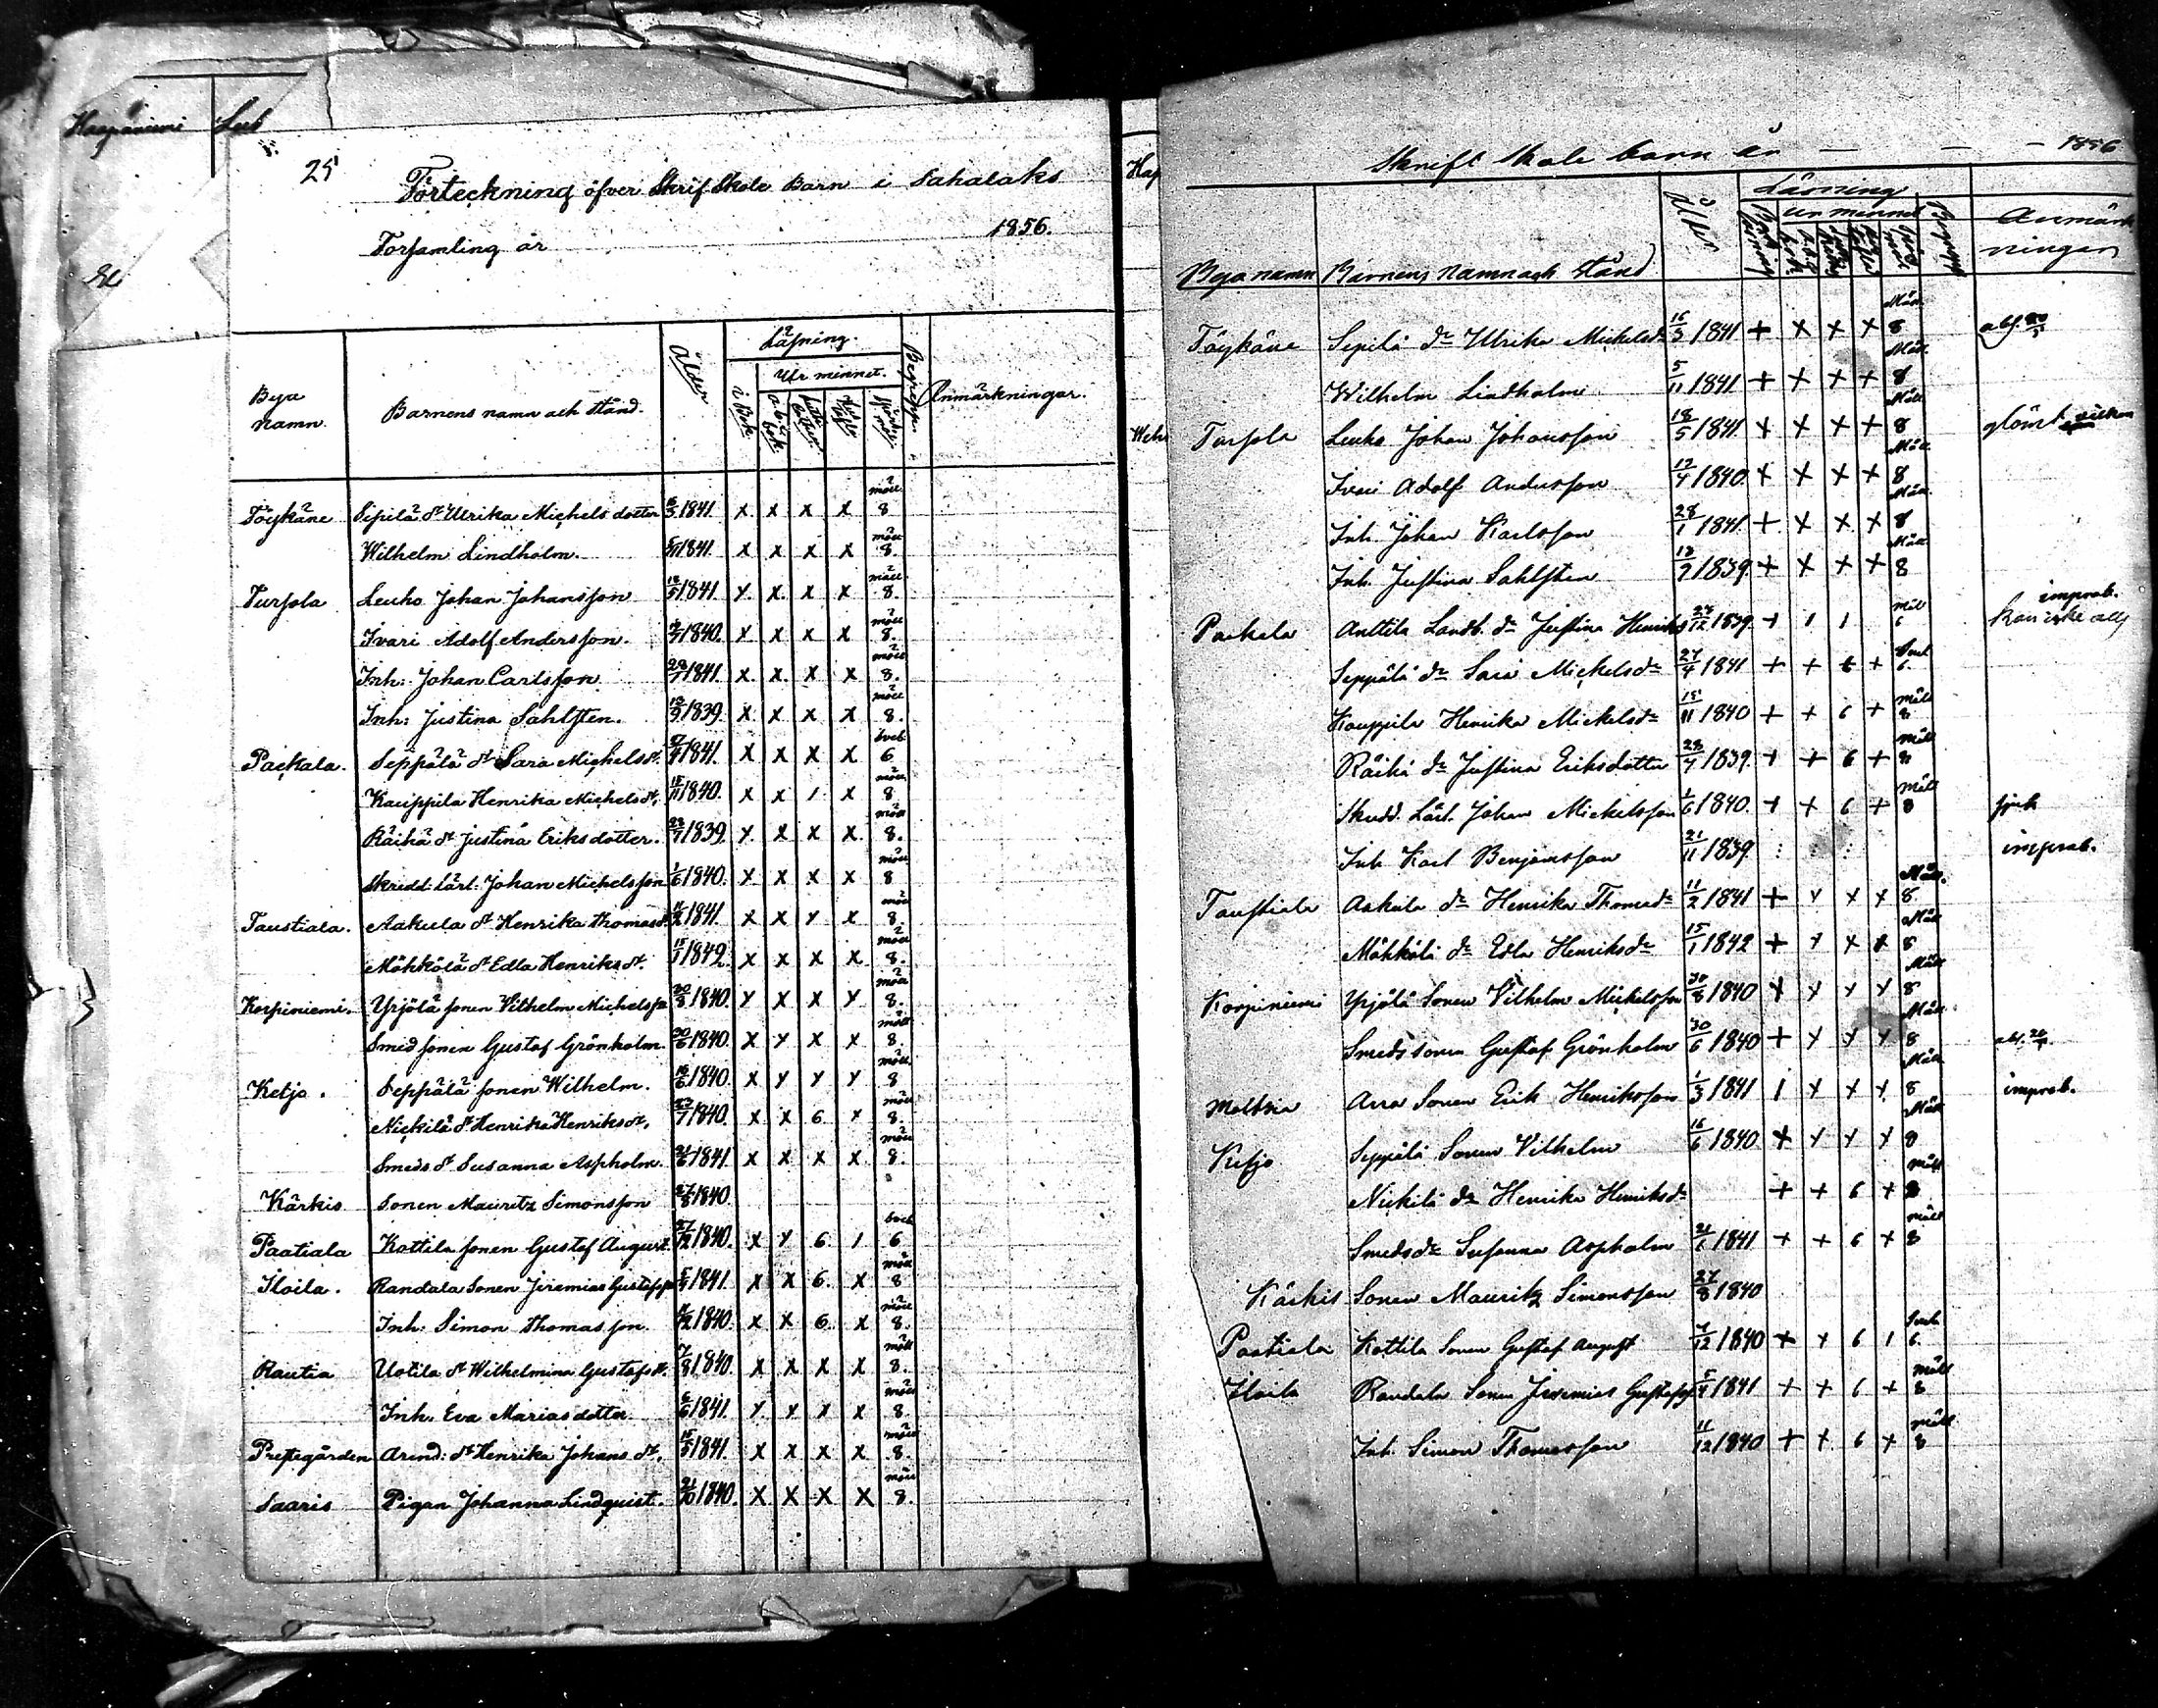 Haapaniemi
25
Förteckning öfver Skrif Skole Barn i Sahalaks
Forsamling år 1856.
Bya namn.
Barnens namn och stånd.
Ålder
Läsning.
i Bok
Ur minnet.
a-b-c bok
Begrepp.
Anmärkningar.
Töykäne Sipilä dr Ulrika Michels dotter 16/3 1841. x x x x möll. 8
Wilhelm Lindholm. 5/11 1841. x x x x möll 8.
Tursola Leuho Johan Johansson 18/5 1841. x x x x möll. 8.
Ivari Adolf Andersson. 1840. x x x x möll 8.
Inh: Johan Carlsson. 28/1 1841. x x x x möll 8.
Inh: Justina Sahlsten. 1839. x x x x möll 8.
Packala. Seppälä dr Sara Michels dr. 27/4 1841. x x x x 6
Kauppila Henrika Michels dr. 15/11 1840. x x 1 x möll 8
Räihä dr Justina Eriksdotter. 28/7 1839. x x x x möll 8.
Skredd: Lärl: Johan Michelsson 1/6 1840. x x x x möll 8
Taustiala. Aakula dr Henrika Thomas dr. 11/2 1841. x x x x möll 8.
Möhkölä dr Edla Henriks dr. 15/1 1842. x x x x möll 8.
Korpiniemi. Yrjölä sonen Wilhelm Michelss. 30/8 1840. x x x x möll 8.
Smed sonen Gustaf Grönholm. 30/6 1840. x x x x möll 8.
Ketjo. Seppälä sonen Wilhelm. 16/6 1840. x x x x möll. 8
Nickilä dr Henrika Henriks dr. 1840. x x 6 x möll 8.
Smeds dr Susanna Aspholm. 21/6 1841. x x x x möll 8.
Kärkis Sonen Mauritz Simonsson 27/8 1840.
Paatiala Kottila sonen Gustaf August. 1840. x x 6 1 6
Iloila. Randala Sonen Jeremias Gustafss. 5/4 1841. x x 6. x möll 8
Inh: Simon Thomasson. 11/12 1840. x x 6. x möll 8.
Rautia Uotila dr Wilhelmina Gustafs dr. 1840. x x x x möll 8.
Inh. Eva Mariasdotter. 6/6 1841. x x x x möll 8.
Prestgården Arend: dr Henrika Johans dr. 15/5 1841. x x x x möll 8.
Saaris Pigan Johanna Lindquist. 1840. x x x x möll 8.
Skrift Skole barn år — — — 1856
Bya namn
Barnens namn och stånd
Ålder
Läsning
ur minnet
Begrepp
Anmärkningar
Töykäne Sepilä dr Ulrika Mickelsdr 16/3 1841 + x x x Möll 8
Wilhelm Lindholm 5/11 1841 + x x + Möll 8
Tursola Leuho Johan Johansson 18/5 1841 + x x + Möll 8
Ivari Adolf Andersson 1840. + x x + Möll 8
Inh. Johan Karlsson 28/1 1841. + x x x Möll 8
Inh. Justina Sahlsten 1839. + x x + Möll 8
Packala Anttila Landb. dr Justina Henriks 1839. + 1 1 improb.
Seppälä dr Sara Mickelsdr 27/4 1841 + + 6 + 6
Kauppila Henrika Mickelsdr 15/11 1840 + + 6 + möll 8
Räihä dr Justina Eriksdotter 28/7 1839. + + 6 + möll 8
Skredd. Lärl. Johan Mickelsson 1/6 1840. + + 6 + möll 8 sjuk
Inh Karl Benjamsson 21/11 1839. improb.
Taustiala Aakula dr Henrika Thomasdr 11/2 1841 + x x x Möll. 8
Möhkölä dr Edla Henriksdr 15/1 1842 + x x x Möll 8
Korpiniemi Yrjölä Sonen Vilhelm Mickelsson 30/8 1840 x x x x Möll 8
Smeds sonen Gustaf Grönholm 30/6 1840 + x x x Möll 8
Arra Sonen Erik Henriksson 1/3 1841 1 x x x Möll 8 improb.
Ketjo Seppälä Sonen Vilhelm 16/6 1840 x x x x Möll 8
Nickilä dr Henrika Henriksdr + + 6 + möll 8
Smedsdr Susanna Aspholm 21/6 1841 + + 6 x möll 8
Kärkis Sonen Mauritz Simonsson 27/8 1840
Paatiala Kottila Sonen Gustaf August 1840 + + 6 1 6.
Iloila Randala Sonen Jeremias Gustafss 5/4 1841 + + 6 + möll 8
Inh. Simon Thomasson 11/12 1840 + + 6 + möll 8